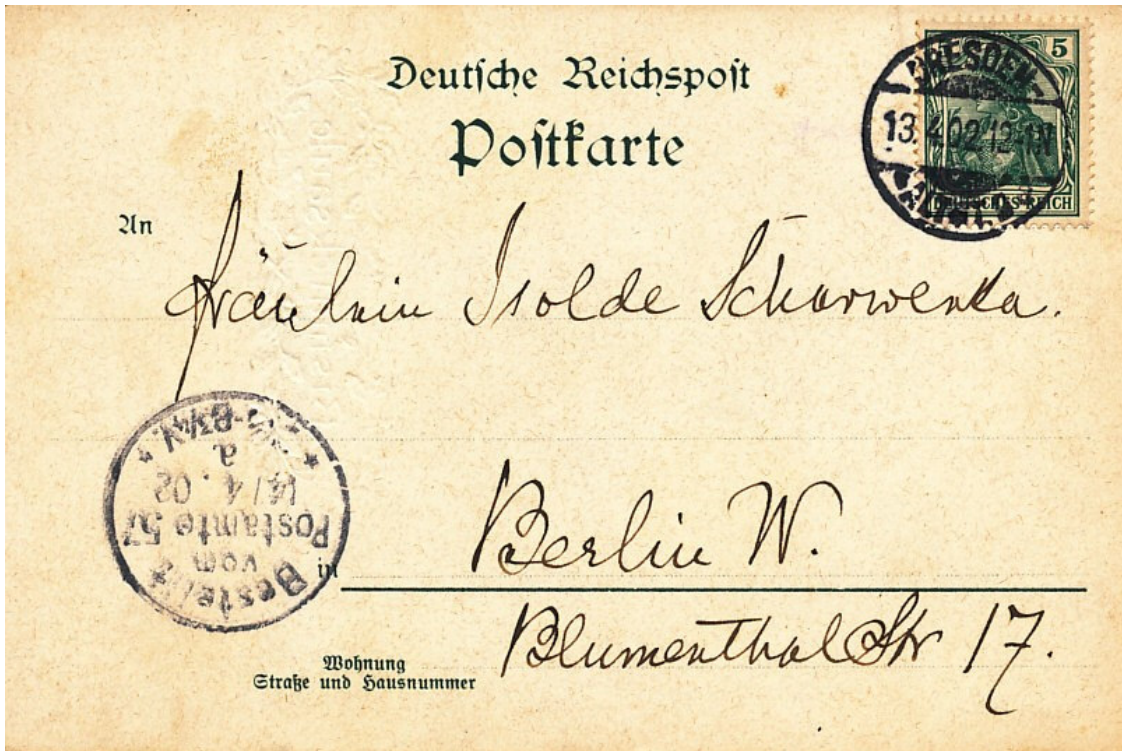 Deutsche Reichspost
Postkarte
5
DRESDEN
13.4.02.12-1N
DEUTSCHES REICH
An
Fräulein Isolde Scharwenka.
Bestellt
vom
Postamte 57
14/4.02
a
in
Berlin W.
Blumenthal Str 17.
Wohnung
Straße und Hausnummer